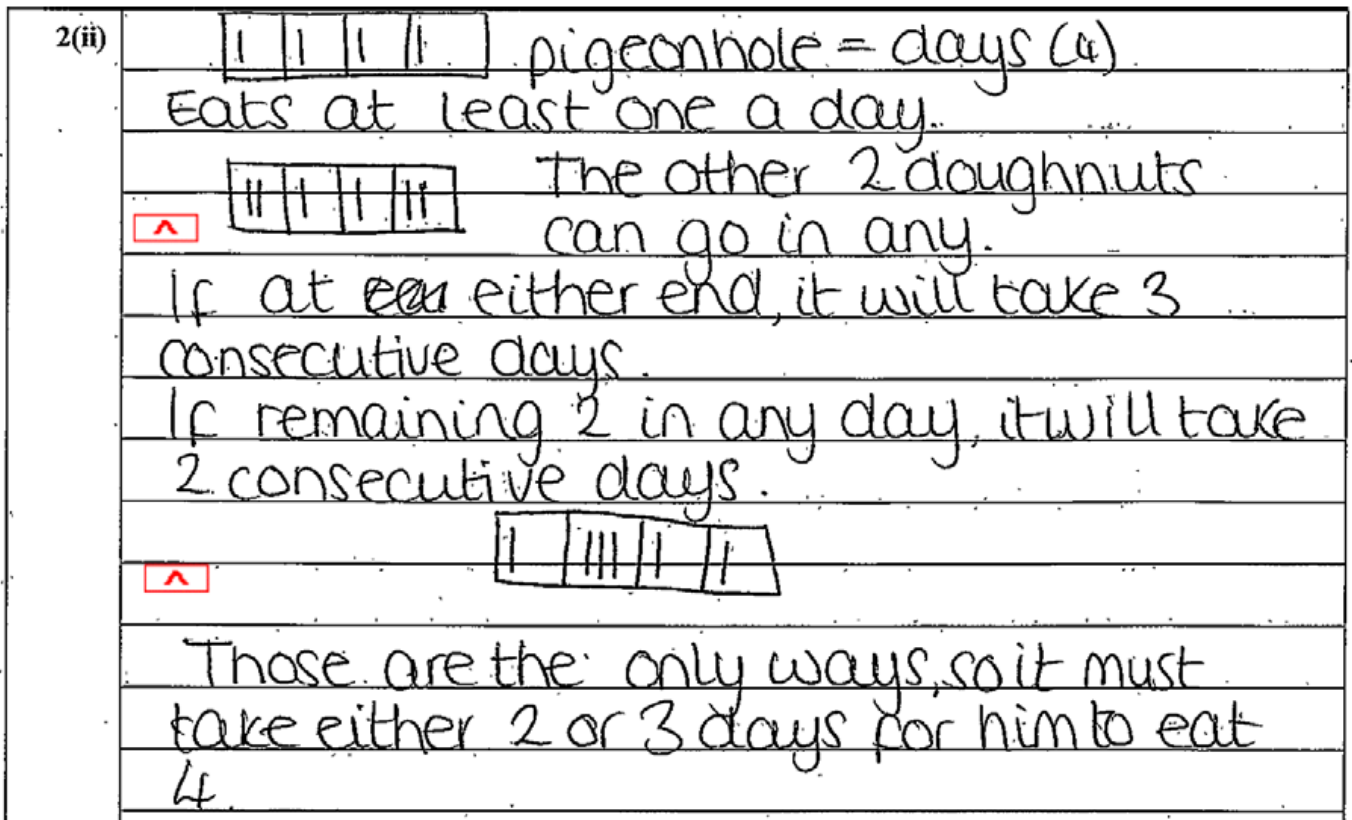 2(ii)
pigeonhole = days (4)
Eats at least one a day.
The other 2 doughnuts
can go in any.
If at either end, it will take 3
consecutive days.
If remaining 2 in any day, it will take
2 consecutive days.
Those are the only ways, so it must
take either 2 or 3 days for him to eat
4.